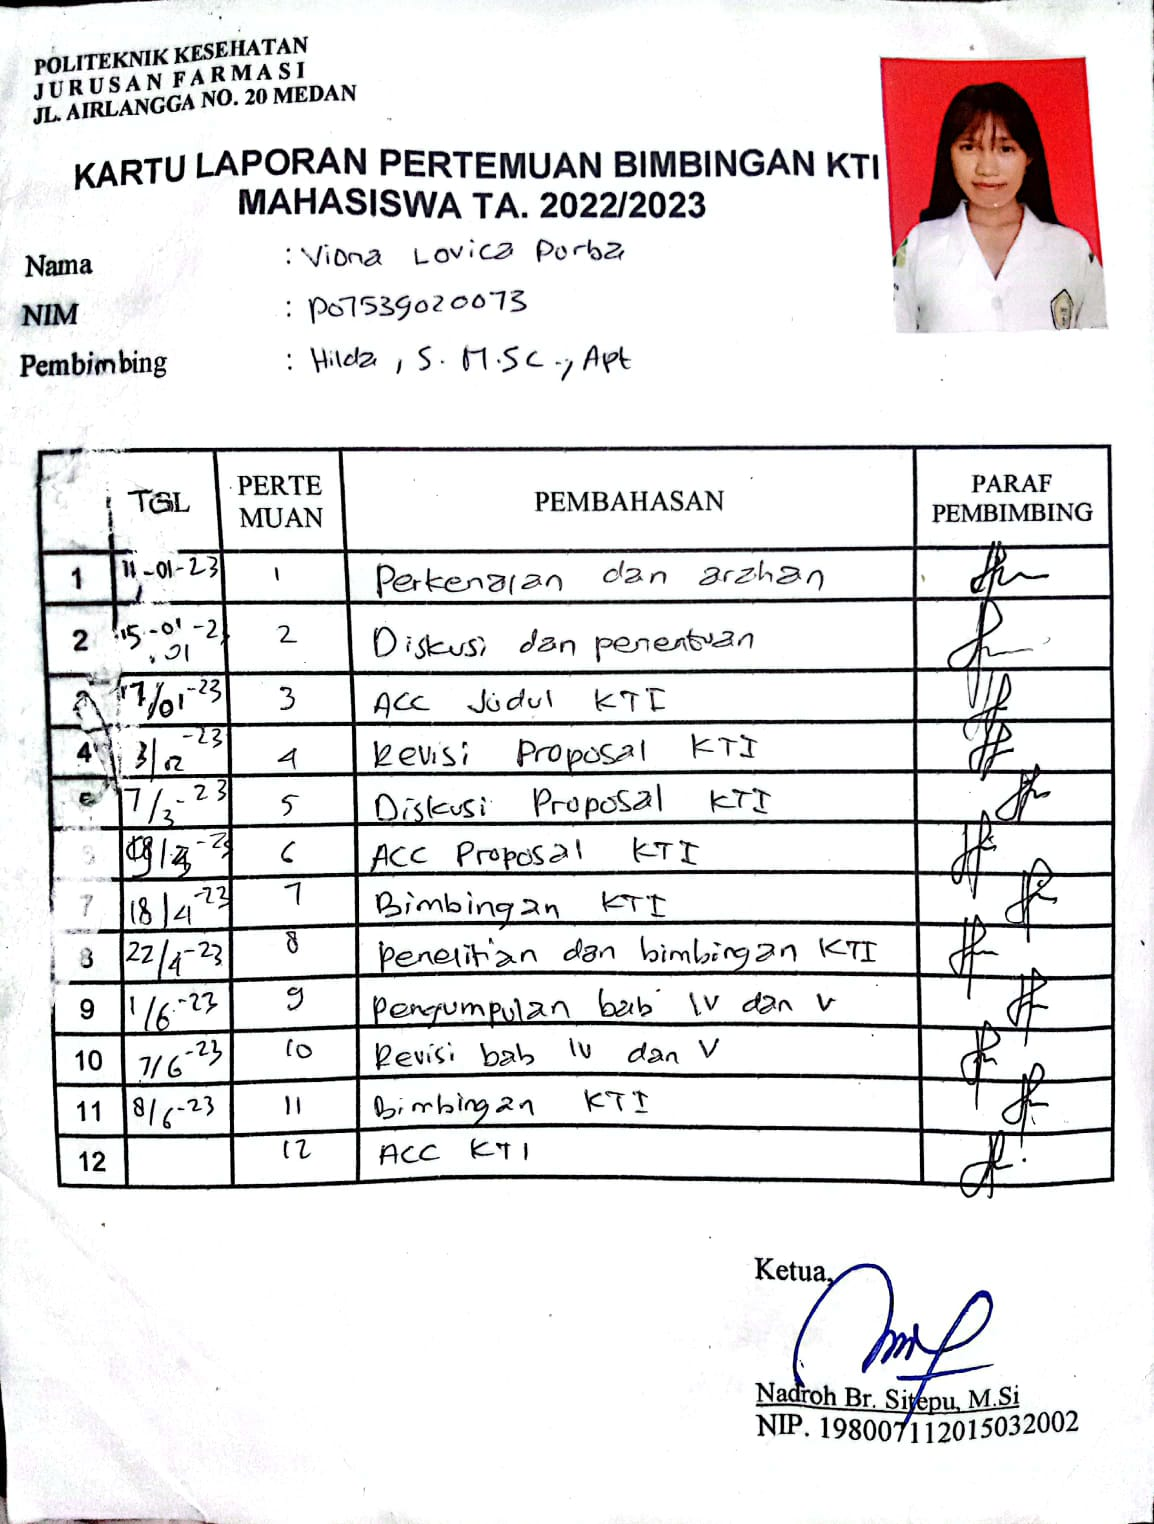 POLITEKNIK KESEHATAN
JURUSAN FARMASI
JL. AIRLANGGA NO. 20 MEDAN
KARTU LAPORAN PERTEMUAN BIMBINGAN KTI
MAHASISWA TA. 2022/2023
Nama : Viona Lovica Purba
NIM : P07539020073
Pembimbing : Hilda, S. M.SC., Apt
TGL PERTE MUAN PEMBAHASAN PARAF PEMBIMBING
1 11-01-23 1 Perkenalan dan arahan
2 2 Diskusi dan penentuan
17/01-23 3 ACC Judul KTI
4 3/02-23 4 Revisi Proposal KTI
7/3-23 5 Diskusi Proposal KTI
6 ACC Proposal KTI
7 18/4-23 7 Bimbingan KTI
8 22/4-23 8 Penelitian dan bimbingan KTI
9 1/6-23 9 Pengumpulan bab IV dan V
10 7/6-23 10 Revisi bab IV dan V
11 8/6-23 11 Bimbingan KTI
12 12 ACC KTI
Ketua,
Nadroh Br. Sitepu, M.Si
NIP. 198007112015032002